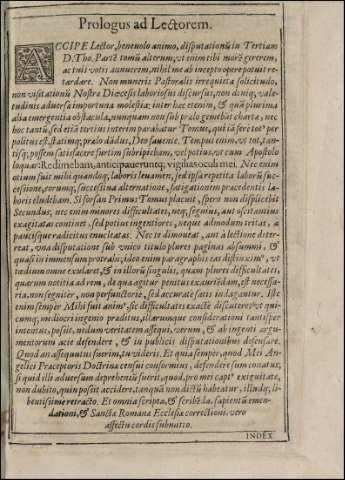 Prologus ad Lectorem.
ACCIPE Lector, benevolo animo, disputationũ in Tertiam
D. Tho. Partẽ tomũ alterum, vt enim tibi morẽ gererem,
ac tuis votis annuerem, nihil me ab incepto opere potuit re-
tardare. Non muneris Pastoralis irrequieta solicitudo,
non visitationũ Nostræ Diœcesis laboriosi discursus, non deniq; vale-
tudinis adversa importuna molestia: inter hæc etenim, & quã plurima
alia emergentia obstacula, nunquam non sub prælo genebat charta, nec
hoc tantũ, sed etiã tertius interim parabatur Tomus, qui iã ferè
politus est, statimq; prælo dãdus, Deo favente. Tempus enim, vt tot, tan-
tisq; possem satisfacere furtim subripiebam, vel potius, vt cum Apostolo
loquar: Redimebam, anticipaveruntq; vigilias oculi mei. Nec enim
otium fuit mihi quandoq; laboris levamen, sed ipsa repetita laborũ suc-
cessione, eorumq; successiva alternatione, fatigationem præcedentis la-
boris eludebam. Si forsan Primus Tomus placuit, spero non displicebit
Secundus; nec enim minores difficultates, neq; segnius, aut oscitantius
exagitatas continet, sed potius ingentiores, neque admodum tritas, a
paucisque radicitus enucleatas. Nec te dimoveat, aut a lectione deter-
reat, vna disputatione sub vnico titulo plures paginas absumi, &
quasi in immensum protrahi; ideo enim paragraphis eas distinximꝰ, vt
tædium omne exularet, & in illorũ singulis, quam plures difficultates,
quarum notitia ad rem, de qua agitur penitus exauriẽdam, est necessa-
ria, non segniter, non perfunctorie, sed accurate satis indagantur. Iste
enim semper Mihi fuit animꝰ, sic difficultates exactè discutere, vt qui-
cumq; mediocri ingenio præditus, illarumque considerationi tantisper
intentus, possit, nedum veritatem assequi, verum, & ab ingenti argu-
mentorum acie defendere, & in publicis disputationibus defensare.
Quod an assequutus fuerim, tu videris. Et quia semper, quod Mei An-
gelici Præceptoris Doctrinæ censui conformius, defendere sum conatus;
si quid illi adversum deprehensũ fuerit, quod, pro mei captꝰ exiguitate,
non dubito, quin possit accidere, tanquã non dictũ habeatur, illudq; li-
bentissime retracto. Et omnia scripta, & scribẽda, sapientũ emen-
dationi, & Sanctæ Romanæ Ecclesiæ correctioni vero
affectu cordis submitto.
INDEX